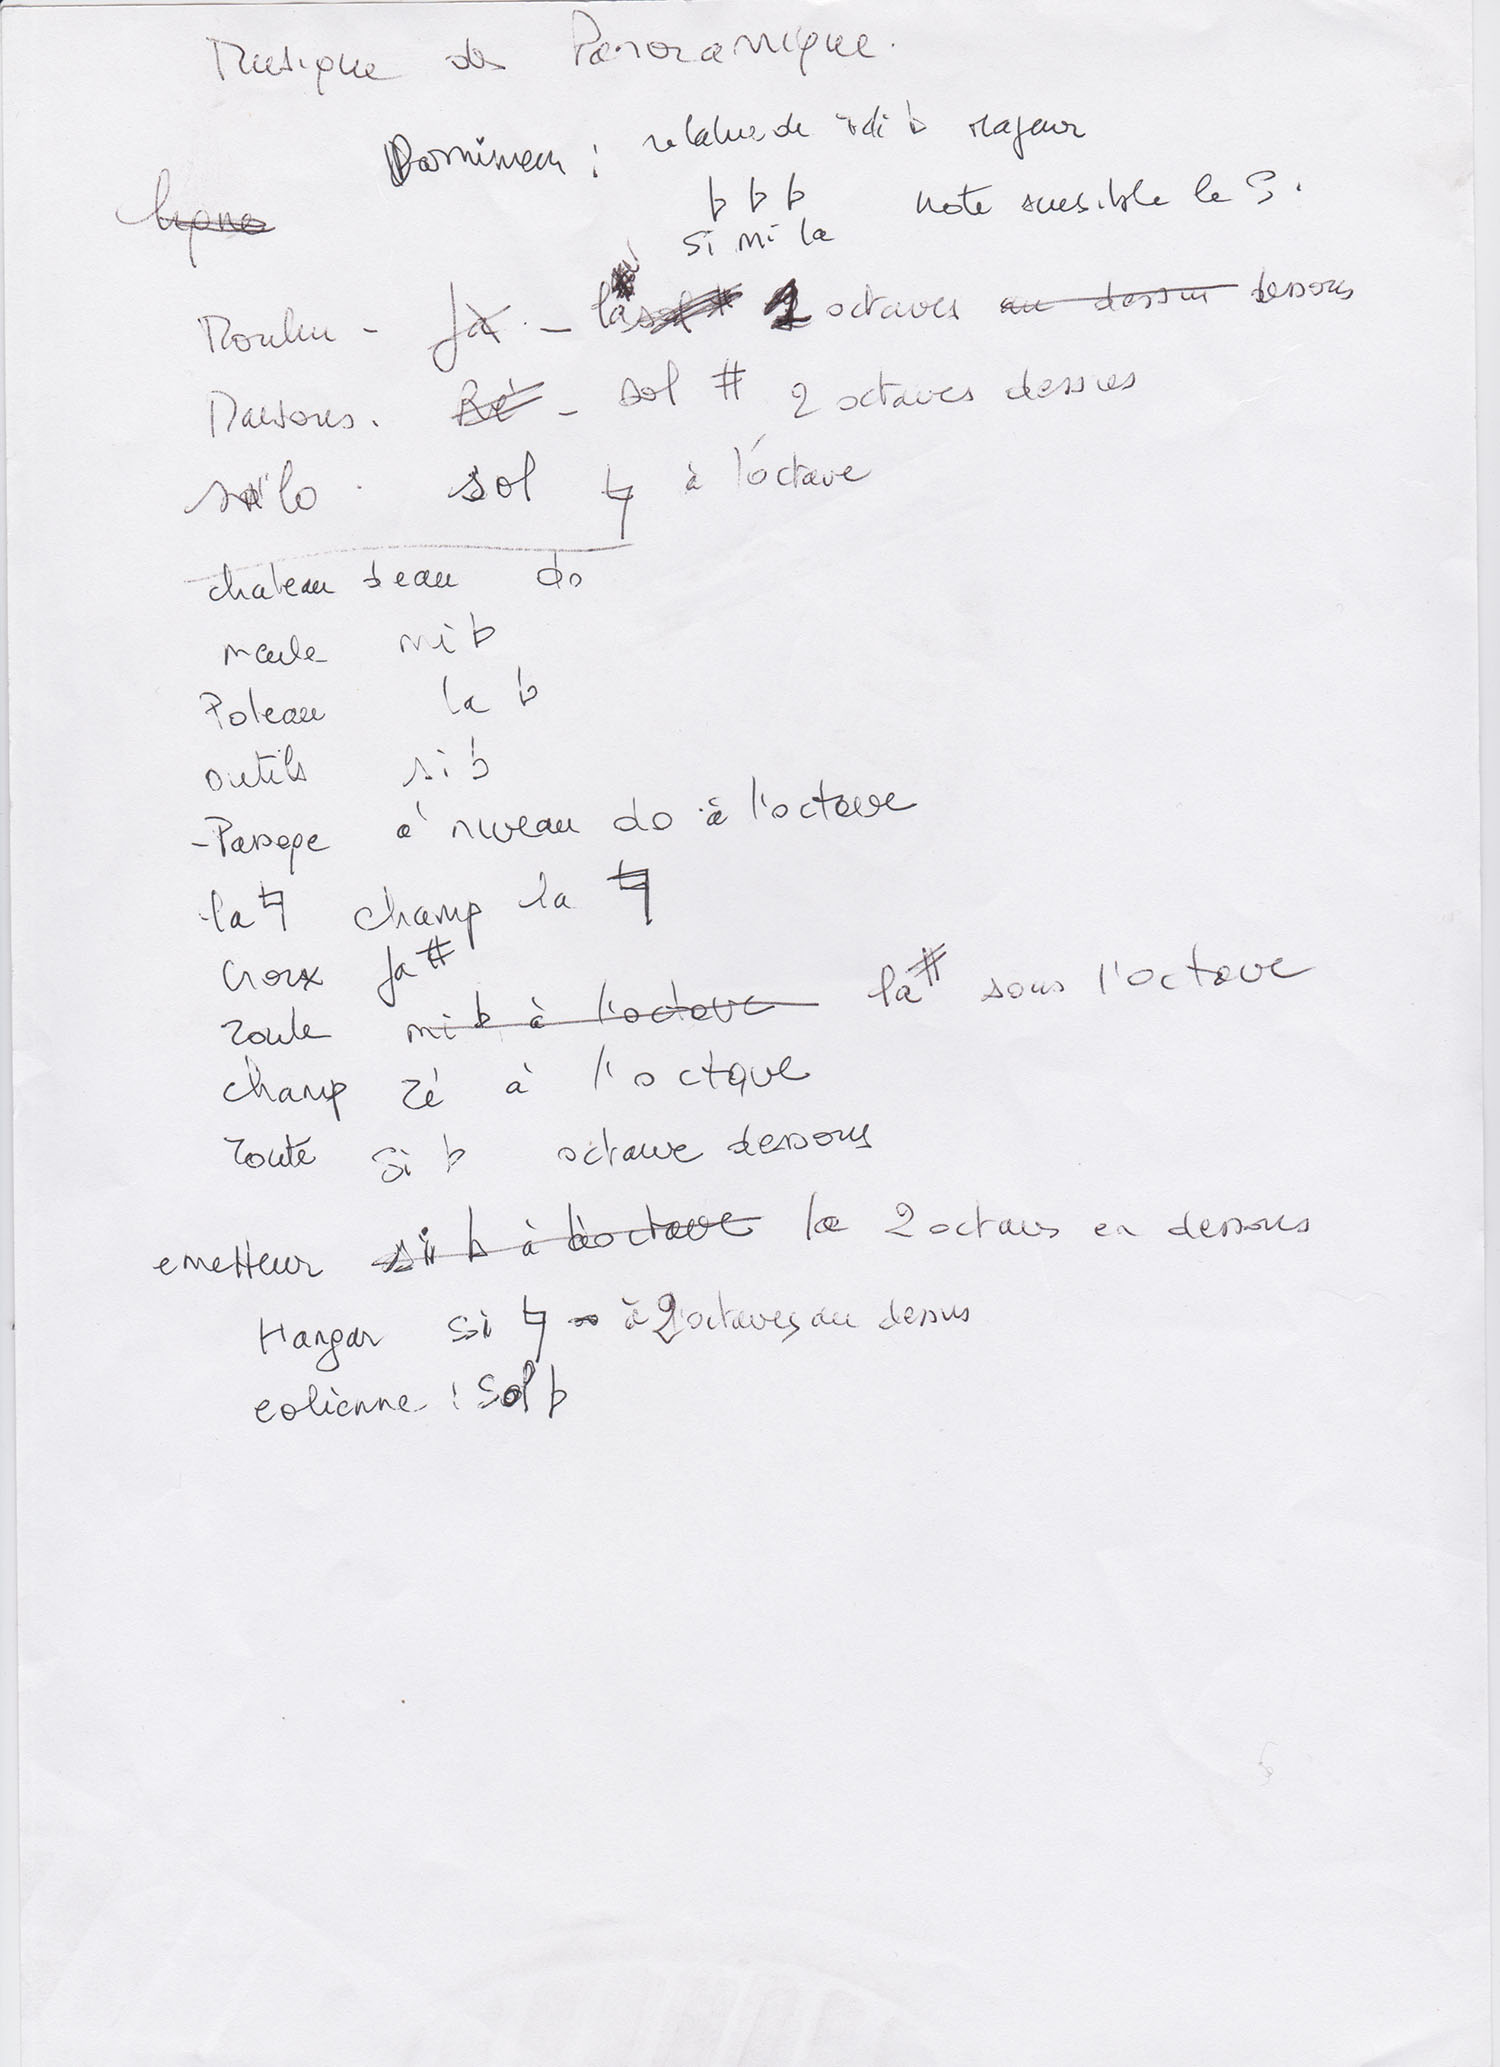 Musique du Panoramique.
Do mineur : relative de Mi b majeur
b b b note sensible le S.
si mi la
Moulin - fa - la 2 octaves au dessus dessous
Maisons. Ré - sol # 2 octaves dessus
silo. sol ♮ à l'octave
chateau d'eau do
mare mi b
Poteau la b
outils si b
-Passage à niveau do à l'octave
la ♮ champ la ♮
croix fa #
route mi b à l'octave la # sous l'octave
champ ré à l'octave
route si b octave dessous
emetteur si b à l'octave la 2 octaves en dessous
Hangar si ♮ à 2 octaves au dessus
eolienne : Sol b